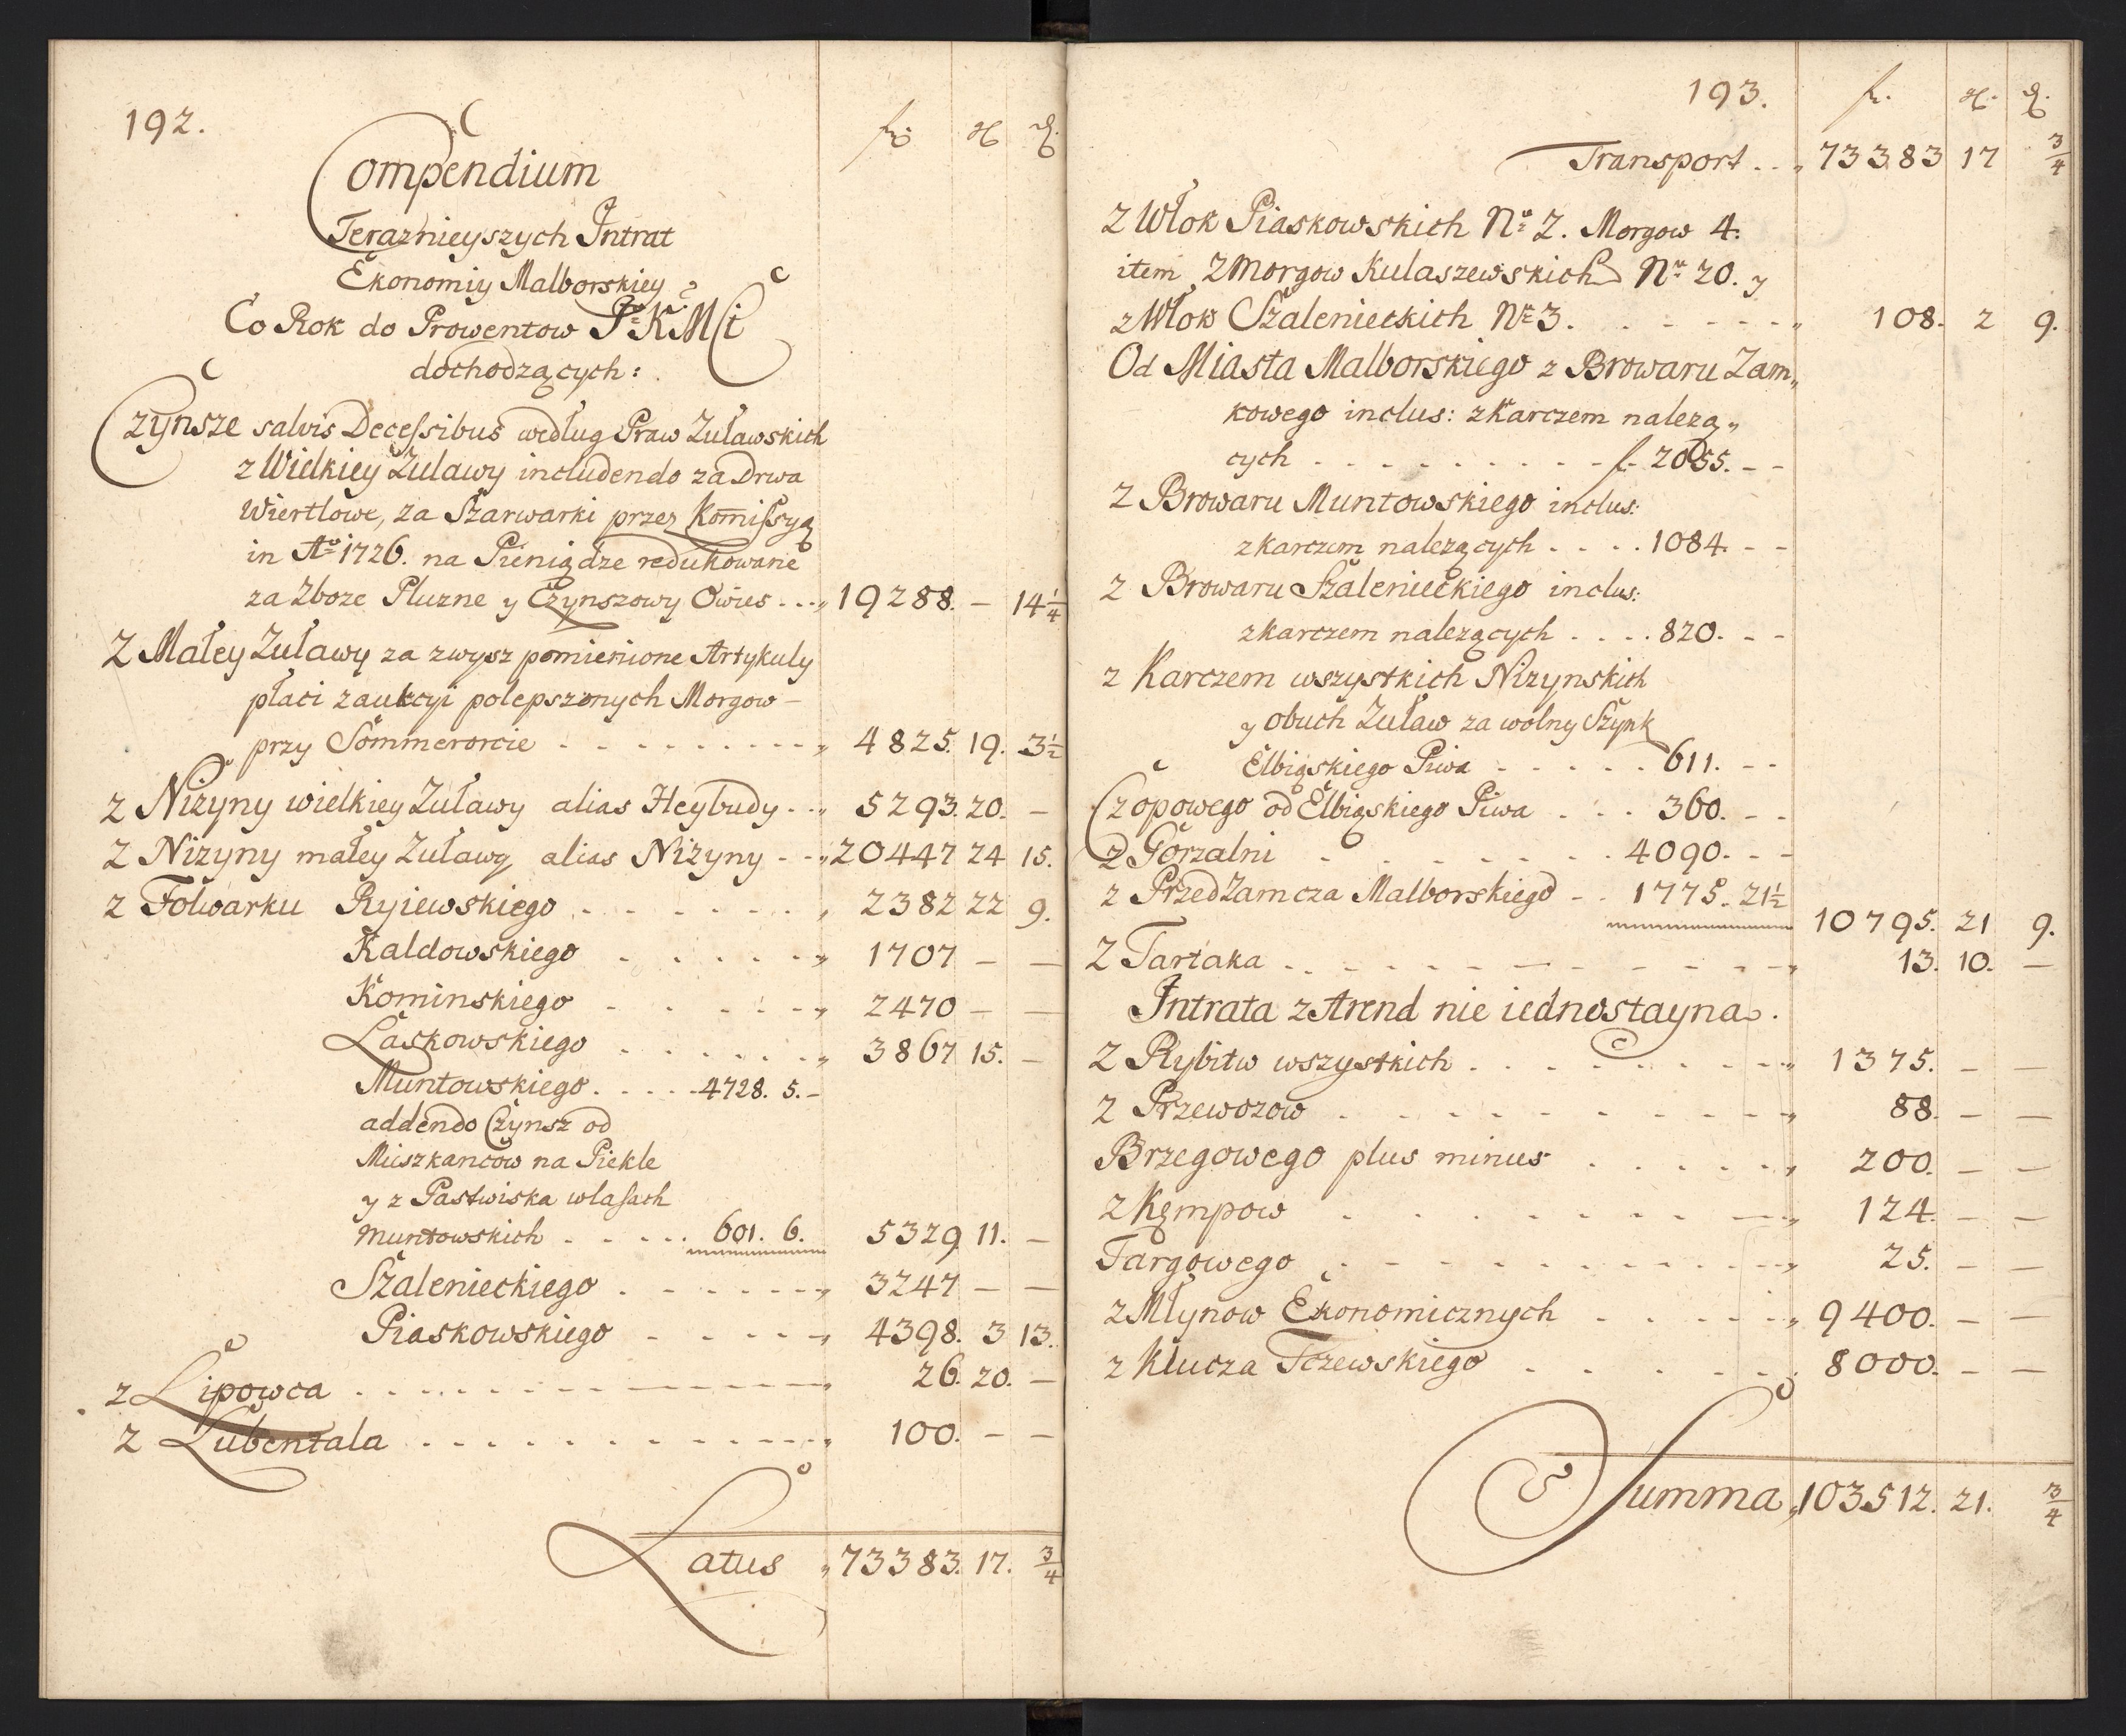 192.
fl: gr ₰.
Compendium
Teraznieyszych Intrat
Ekonomiy Malborskiey
Co Rok do Prowentow P. K Mci
dochodzących:
Czynsze salvis Decessibus według Praw Zuławskich
z Wielkiey Zulawy includendo za Drwa
Wiertlowe, za Szarwarki przez Komissyą
in Ao 1726. na Pieniądze redukowane
za Zboze Pluzne y Czynszowy Owies . . . „ 19288. – 14 1/4
Z Małey Zuławy za zwysz pomienione Artykuly
płaci z aukcyi polepszonych Morgow –
przy Sommerorcie . . . . . . . . „ 4825. 19. 3 1/2
z Nizyny wielkiey Zuławy alias Heybudy . . „ 5293. 20. –
z Nizyny małey Zuławy alias Nizyny - - „ 20447 24 15.
z Folwarku Ryiewskiego . . . . . . „ 2382 22 9.
Kaldowskiego . . . . . „ 1707 – –
Kominskiego . . . . . „ 2470 – –
Laskowskiego . . . . . „ 3867 15. –
Muntowskiego . . . . 4728. 5. –
addendo Czynsz od
Mieszkancow na Piekle
y z Pastwiska w lasach
Muntowskich . . . . . 601. 6. 5329 11. –
Szalenieckiego . . . . . . „ 3247 – –
Piaskowskiego . . . . . „ 4398. 3 13.
z Lipowca . . . . . . . . „ 26. 20. –
z Lubentala . . . . . . . . „ 100. – –
Latus „ 73383. 17. 3/4
193.
fl. gr. ₰.
Transport . . „ 73383 17 3/4
Z Włok Piaskowskich No 2. Morgow 4.
item, z Morgow Kulaszewskich No 20. y
z Włok Szalenieckich No 3. . . . . . . „ 108. 2 9.
Od Miasta Malborskiego z Browaru Zam„
kowego inclus: z Karczem nalezą„
cych . . . . . . . . . fl. 2055. – –
Z Browaru Muntowskiego inclus:
z karczem nalezących . . . . 1084. – –
z Browaru Szalenieckiego inclus:
z karczem nalezących . . . . 820. – –
z Karczem wszystkich Nizynskich
y obuch Zuław za wolny Szynk
Elbiąskiego Piwa . . . . . 611. – –
Czopowego od Elbiąskiego Piwa . . . 360. – –
z Gorzalni . . . . . . . 4090. – –
z PrzedZamcza Malborskiego – . 1775. 21 1/2
10795. 21 9.
Z Tartaka . . . . . . . . . „ 13. 10. –
Intrata z Arend nie iednostayna.
Z Rybitw wszystkich . . . . . . . „ 1375. – –
z Przewozow . . . . . . . . . „ 88. – –
Brzegowego plus minus . . . . . . „ 200. – –
z Kęmpow . . . . . . . . . „ 124. – –
Targowego . . . . . . . . . „ 25. – –
z Młynow Ekonomicznych . . . . . „ 9400. – –
z Klucza Tczewskiego . . . . . . 8000. – –
Summa „ 103512. 21. 3/4